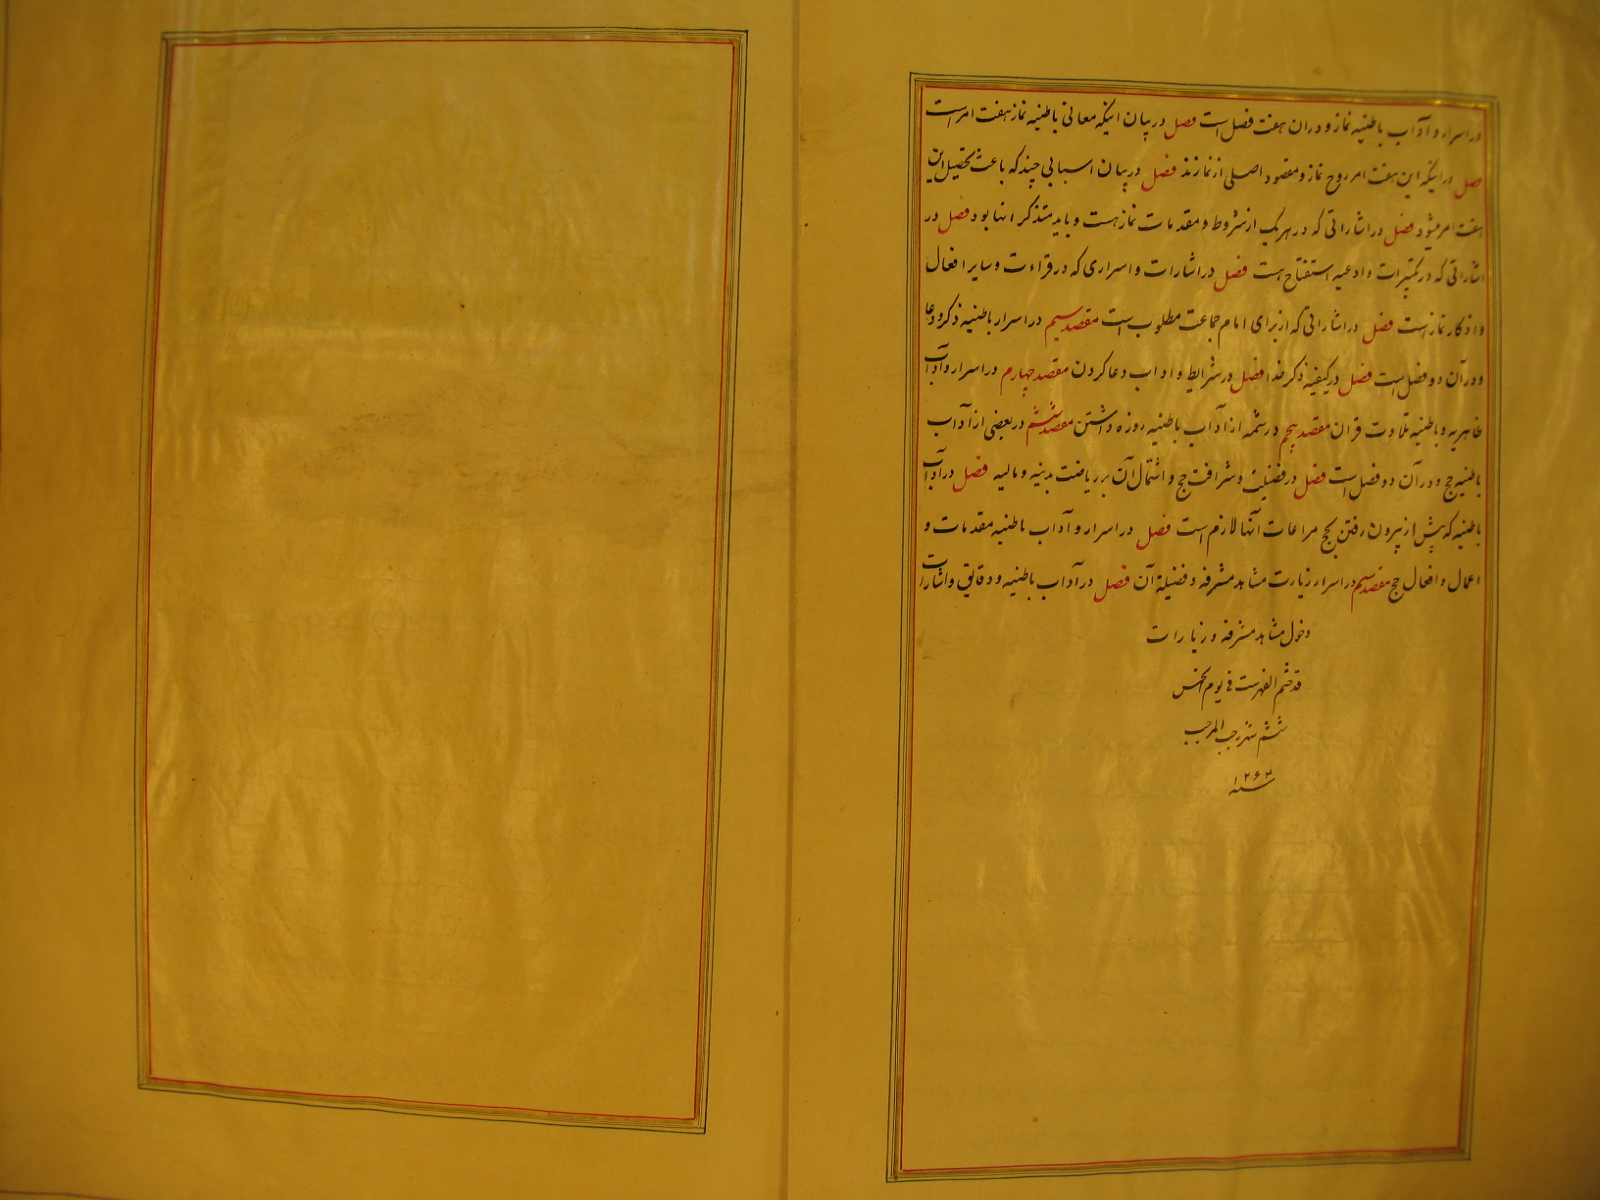 در اسرار و آداب باطنیه نماز و دران هفت فصل است فصل در بیان اینکه معانی باطنیه نماز هفت امر است
فصل در اینکه این هفت امر روح نماز و مقصود اصلی از نمازند فصل در بیان اسبابی چند که باعث تحصیل این
هفت امر میشود فصل در اشاراتی که در هر یک از شروط و مقدمات نماز هست و باید متذکر انها بود فصل در
اشاراتی که در تکبیرات و ادعیه استفتاح هست فصل در اشارات و اسراری که در قراءت و سایر افعال
و اذکار نماز است فصل در اشاراتی که از برای امام جماعت مطلوب است مقصد سیم در اسرار باطنیه ذکر و دعا
و در آن دو فصل است فصل در کیفیه ذکر خدا فصل در شرایط و اداب دعا کردن مقصد چهارم در اسرار و آداب
ظاهریه و باطنیه تلاوت قران مقصد پنجم در شمه از آداب باطنیه روزه داشتن مقصد ششم در بعضی از آداب
باطنیه حج و در آن دو فصل است فصل در فضیلت و شرافت حج و اشتمال آن بر ریاضت بدنیه و مالیه فصل در آداب
باطنیه که پیش از بیرون رفتن بحج مراعات آنها لازم است فصل در اسرار و آداب باطنیه مقدمات و
اعمال و افعال حج مقصد در اسرار زیارت مشاهد مشرفه و فضیلة آن فصل در آداب باطنیه و دقایق و اشارات
دخول مشاهد مشرفه و زیارات
قد ختم الفهرست فی یوم
ششم شهر رجب المرجب
سنه ۱۲۶۳